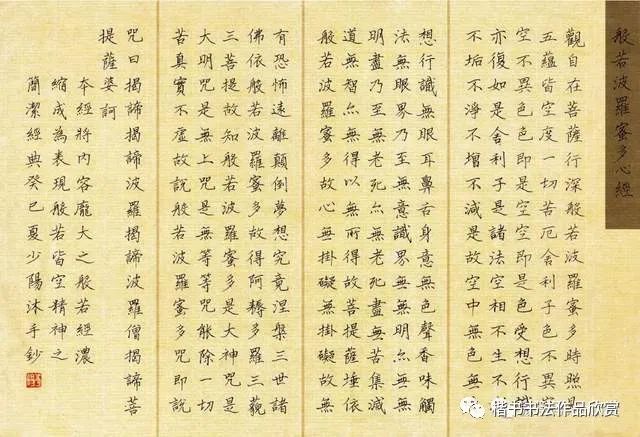 般若波羅蜜多心經
觀自在菩薩行深般若波羅蜜多時照見
五蘊皆空度一切苦厄舍利子色不異空
空不異色色即是空空即是色受想行識
亦復如是舍利子是諸法空相不生不
不垢不淨不增不減是故空中無色無
想行識無眼耳鼻舌身意無色聲香味觸
法無眼界乃至無意識界無無明亦無無
明盡乃至無老死亦無老死盡無苦集滅
道無智亦無得以無所得故菩提薩埵依
般若波羅蜜多故心無掛礙無掛礙故無
有恐怖遠離顛倒夢想究竟涅槃三世諸
佛依般若波羅蜜多故得阿耨多羅三藐
三菩提故知般若波羅蜜多是大神咒是
大明咒是無上咒是無等等咒能除一切
苦真實不虛故說般若波羅蜜多咒即說
咒曰揭諦揭諦波羅揭諦波羅僧揭諦菩
提薩婆訶
本經將內容龐大之般若經濃
縮成為表現般若皆空精神之
簡潔經典癸巳夏少陽沐手鈔
楷书书法作品欣赏